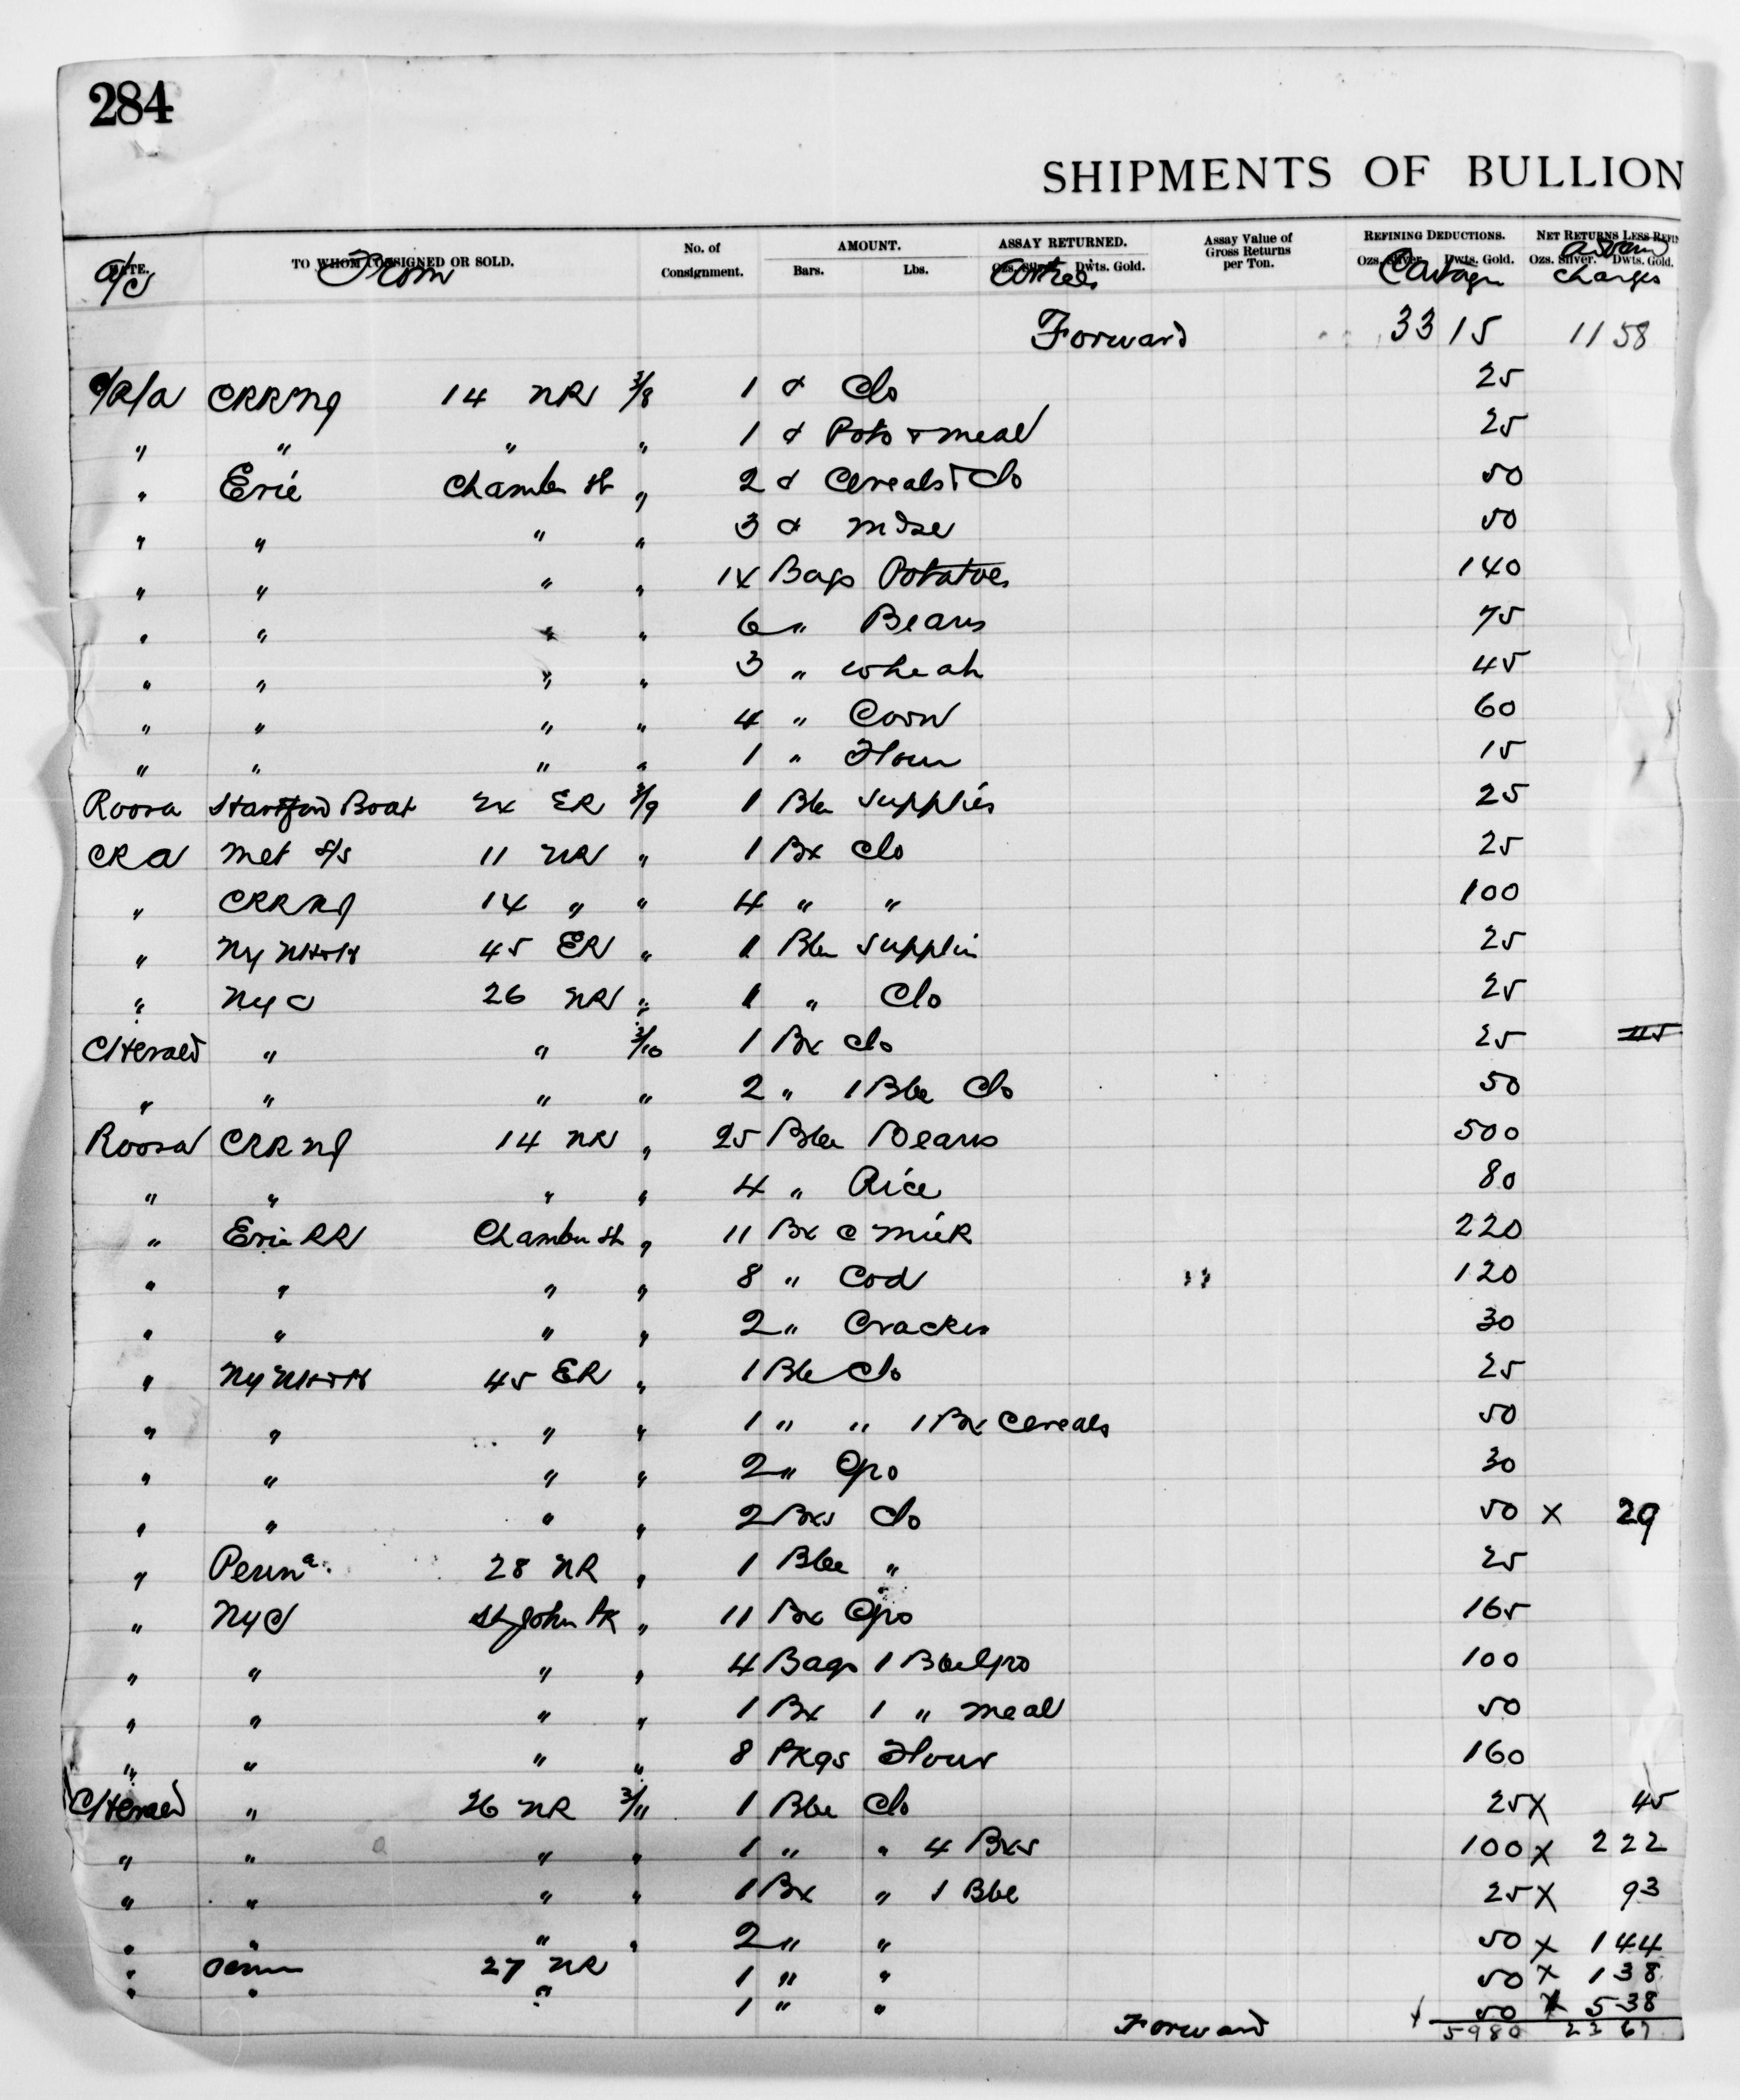 284
SHIPMENTS OF BULLION
DATE. TO WHOM CONSIGNED OR SOLD. No. of Consignment. AMOUNT. Bars. Lbs. ASSAY RETURNED. Ozs. Silver. Dwts. Gold. Assay Value of Gross Returns per Ton. REFINING DEDUCTIONS. Ozs. Silver. Dwts. Gold. NET RETURNS LESS REFIN Ozs. Silver. Dwts. Gold.
a/c From Cartage Charges
Forward 33 15 11 58
C/R/a CRRNJ 14 NR 3/8 1 Clo 25
" " " " 1 Poto & meal 25
" Erie Chamber St " 2 Cereals & Clo 50
" " " " 3 Mdse 50
" " " " 14 Bags Potatoes 140
" " " " 6 " Beans 75
" " " " 3 " wheat 45
" " " " 4 " Corn 60
" " " " 1 " Flour 15
Roosa Hartford Boat 24 ER 3/9 1 Bbl Supplies 25
CRA Met S/S 11 NR " 1 Bx Clo 25
" CRRNJ 14 " " 4 " " 100
" NY NH&H 45 ER " 1 Bbl Supplies 25
" NYC 26 NR " 1 " Clo 25
C/Herald " " 3/10 1 Bx Clo 25 45
" " " " 2 " 1 Bbl Clo 50
Roosa CRRNJ 14 NR " 25 Bbls Beans 500
" " " " 4 " Rice 80
" Erie RR Chamber St " 11 Bx C Milk 220
" " " " 8 " Cod 120
" " " " 2 " Crackers 30
" NY NH&H 45 ER " 1 Bbl Clo 25
" " " " 1 " " 1 Bx Cereals 50
" " " " 2 " Gro 30
" " " " 2 Bxs Clo 50 x 29
" Penna. 28 NR " 1 Bbl " 25
" NYC St John Pk " 11 Bx Gro 165
" " " " 4 Bags 1 Bbl Gro 100
" " " " 1 Bx 1 " meal 50
" " " " 8 Pkgs Flour 160
C/Herald " 26 NR 3/11 1 Bbl Clo 25 x 45
" " " " 1 " " 4 Bxs 100 x 222
" " " " 1 Bx " 1 Bbl 25 x 93
" " " " 2 " " 50 x 144
" Penn 27 NR 1 " " 50 x 138
" " " 1 " " 50 x 538
Forward 5980 23 67